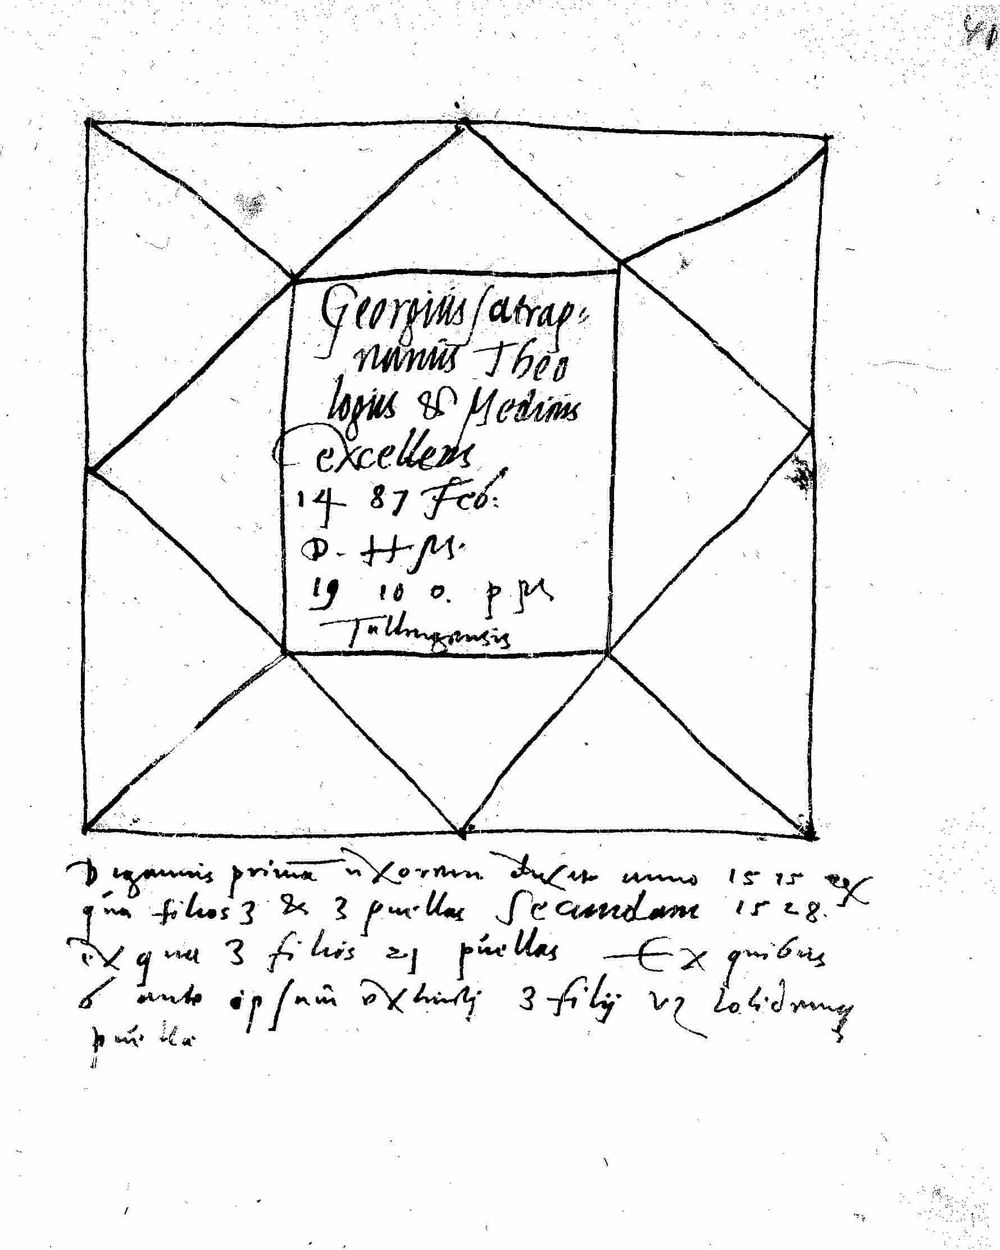 41
Georgius Satrap=
nanus Theo
logus & Medicus
excellens
14 87 Feb:
D. H M.
19 10 0. p M
Tubingensis
Digamus primā uxorem duxit anno 1515 ex
qua filios 3 & 3 puellas Secundam 1528.
ex qua 3 filios 21 puellas Ex quibus
6 ante ipsum 3 filij
puella